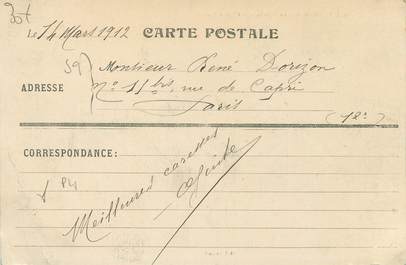 Le 14 Mars 1912 CARTE POSTALE
59
Monsieur René Dorizon
ADRESSE N° 11 bis, rue de Capri
Paris
(12e)
CORRESPONDANCE:
P4
Meilleures caresses